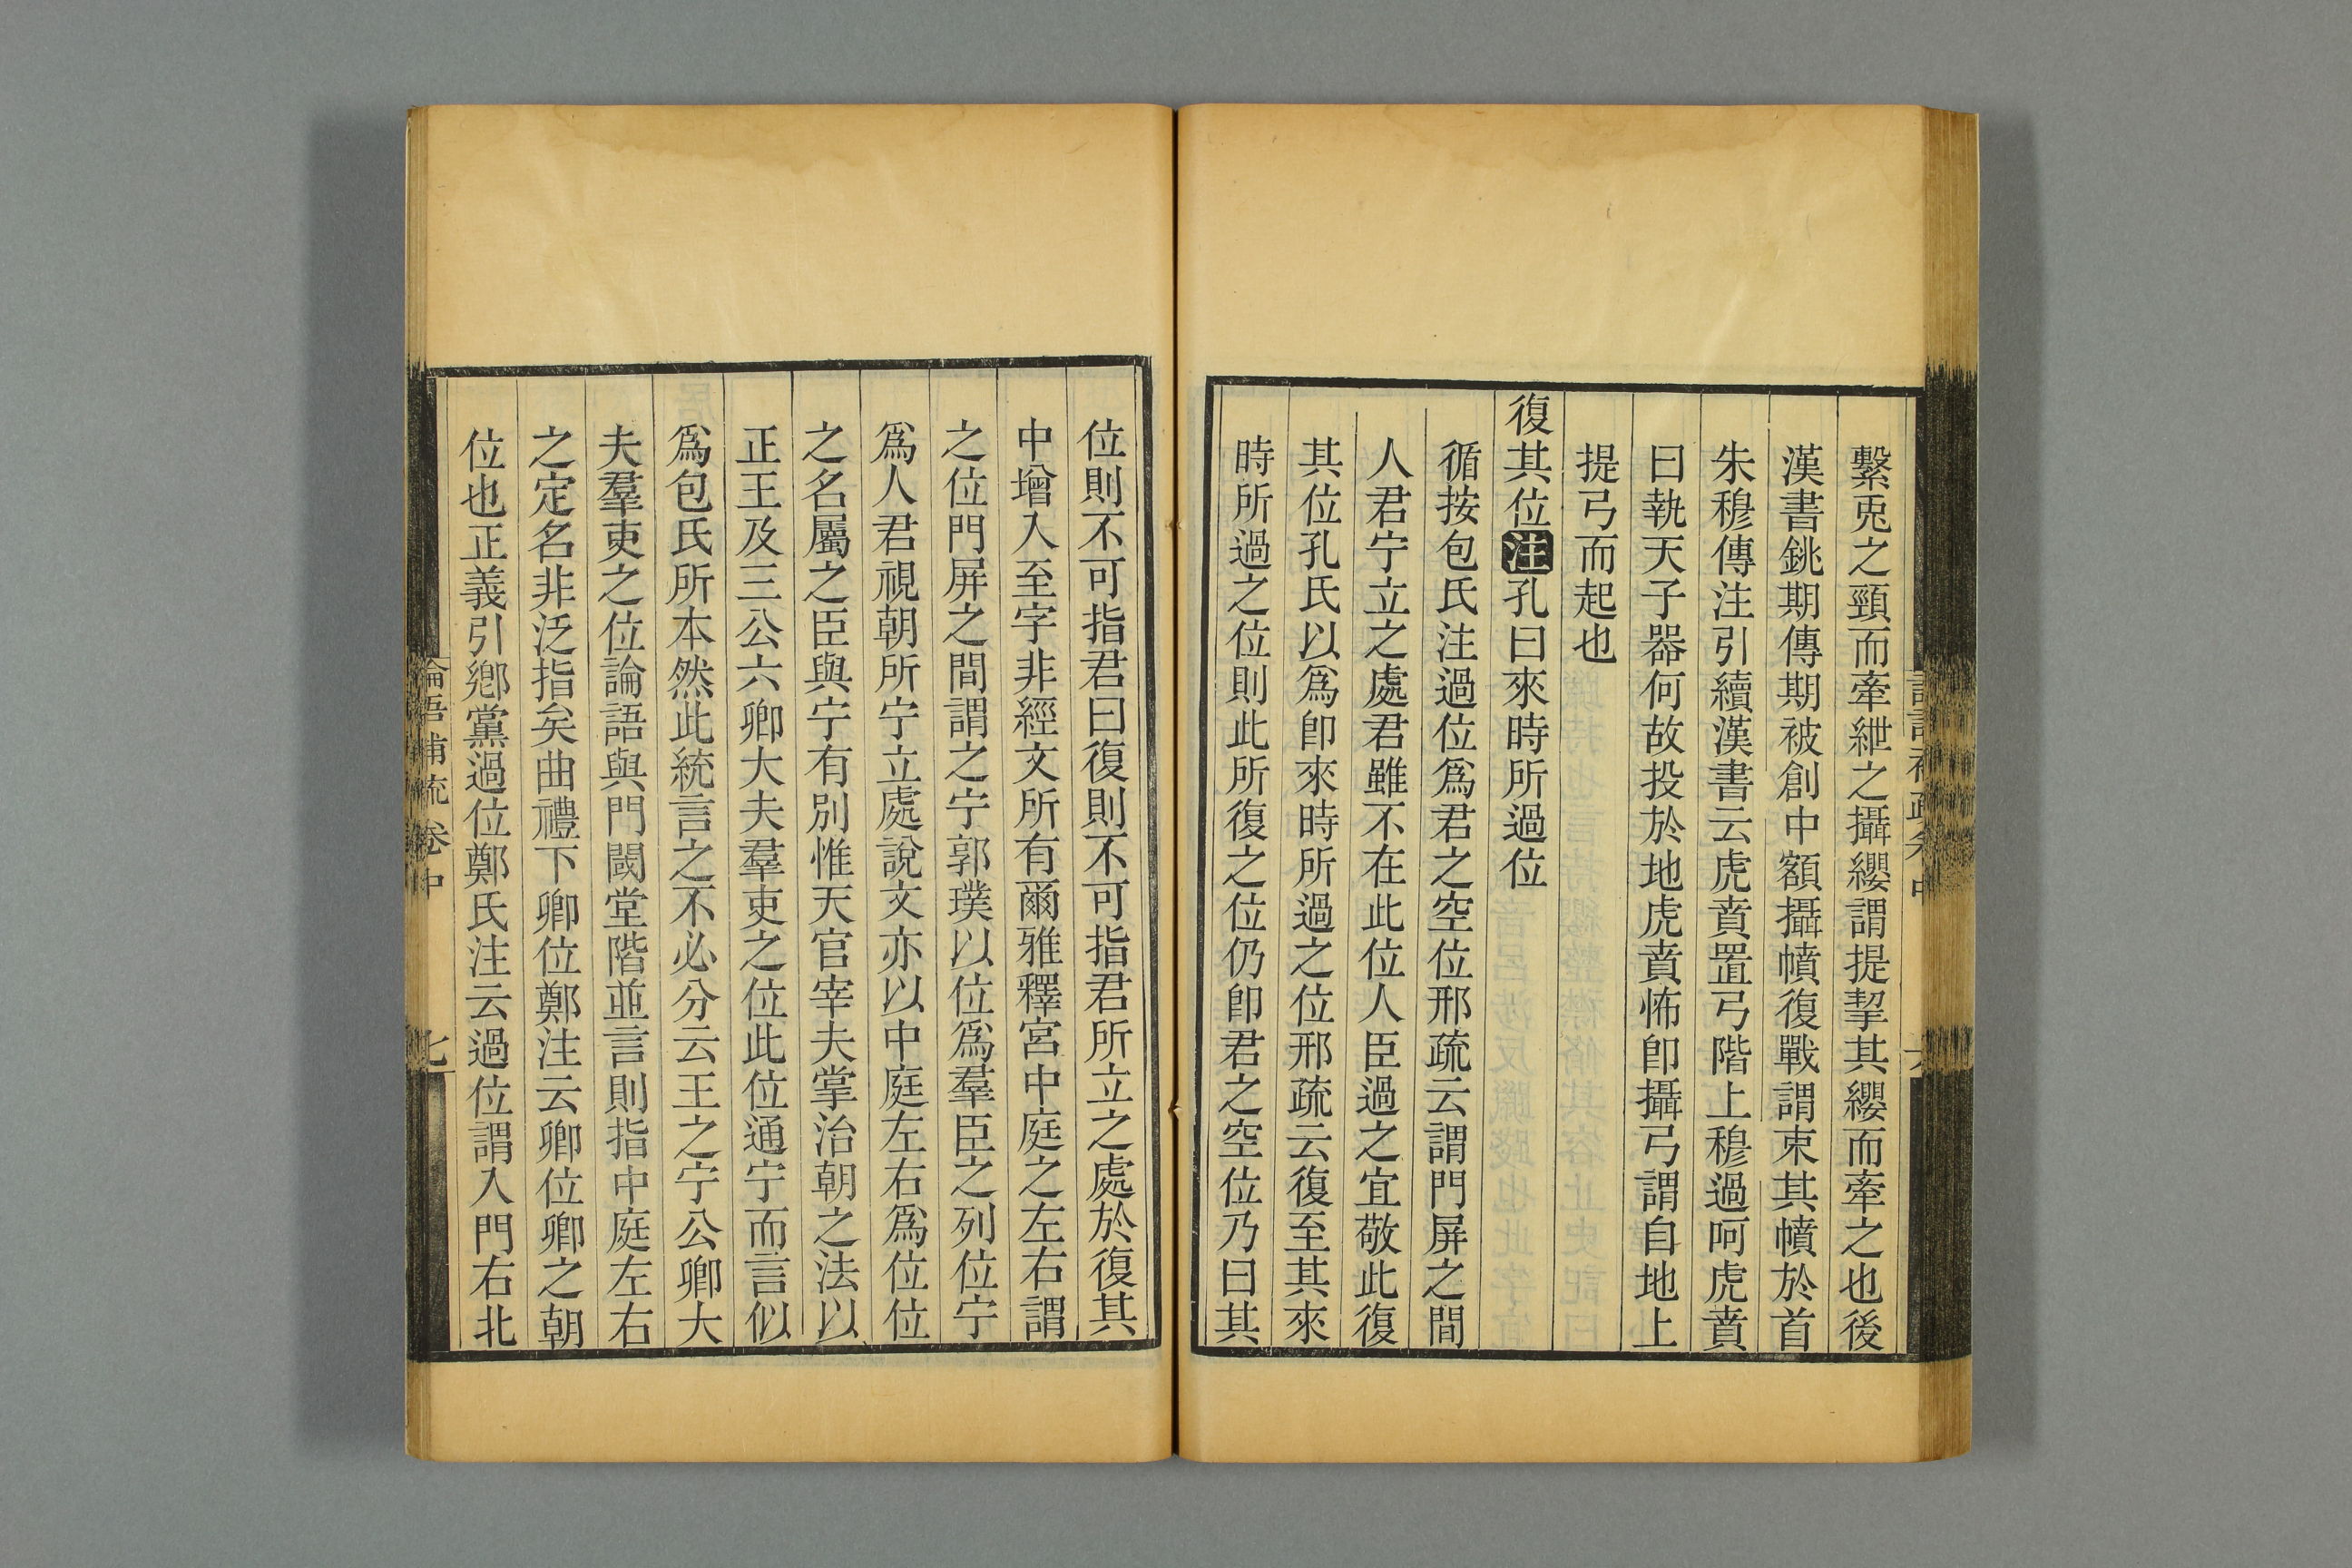 繫兎之頸而牽紲之攝纓謂提挈其纓而牽之也後
漢書銚期傳期被創中額攝幘復戰謂束其幘於首
朱穆傳注引續漢書云虎賁置弓階上穆過呵虎賁
曰執天子器何故投於地虎賁怖卽攝弓謂自地上
提弓而起也
復其位注孔曰來時所過位
循按包氏注過位爲君之空位邢疏云謂門屏之間
人君宁立之處君雖不在此位人臣過之宜敬此復
其位孔氏以爲卽來時所過之位邢疏云復至其來
時所過之位則此所復之位仍卽君之空位乃曰其
位則不可指君曰復則不可指君所立之處於復其
中增入至字非經文所有爾雅釋宮中庭之左右謂
之位門屏之間謂之宁郭璞以位爲羣臣之列位宁
爲人君視朝所宁立處說文亦以中庭左右爲位位
之名屬之臣與宁有別惟天官宰夫掌治朝之法以
正王及三公六卿大夫羣吏之位此位通宁而言似
爲包氏所本然此統言之不必分云王之宁公卿大
夫羣吏之位論語與門閾堂階並言則指中庭左右
之定名非泛指矣曲禮下卿位鄭注云卿位卿之朝
位也正義引鄕黨過位鄭氏注云過位謂入門右北
論語補疏卷中
七